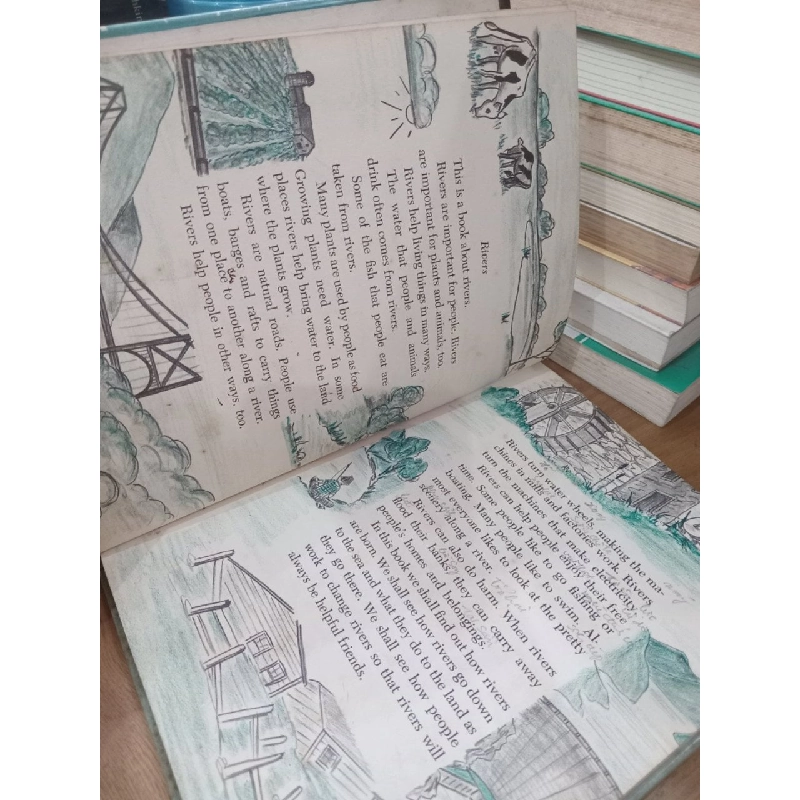 Rivers
This is a book about rivers.
Rivers are important for people. Rivers
are important for plants and animals, too.
Rivers help living things in many ways.
The water that people and animals
drink often comes from rivers.
Some of the fish that people eat are
taken from rivers.
Many plants are used by people as food.
Growing plants need water. In some
places rivers help bring water to the land
where the plants grow.
Rivers are natural roads. People use
boats, barges and rafts to carry things
from one place to another along a river.
Rivers help people in other ways, too.
Rivers turn water wheels, making the ma-
chines in mills and factories work. Rivers
turn the machines that make electricity.
Rivers can help people enjoy their free
time. Some people like to go fishing or
boating. Many people like to swim. Al-
most everyone likes to look at the pretty
along a river.
Rivers can also do harm. When rivers
flood their banks, they can carry away
people's homes and belongings.
In this book we shall find out how rivers
are born. We shall see how rivers go down
to the sea and what they do to the land as
they go there. We shall see how people
work to change rivers so that rivers will
always be helpful friends.